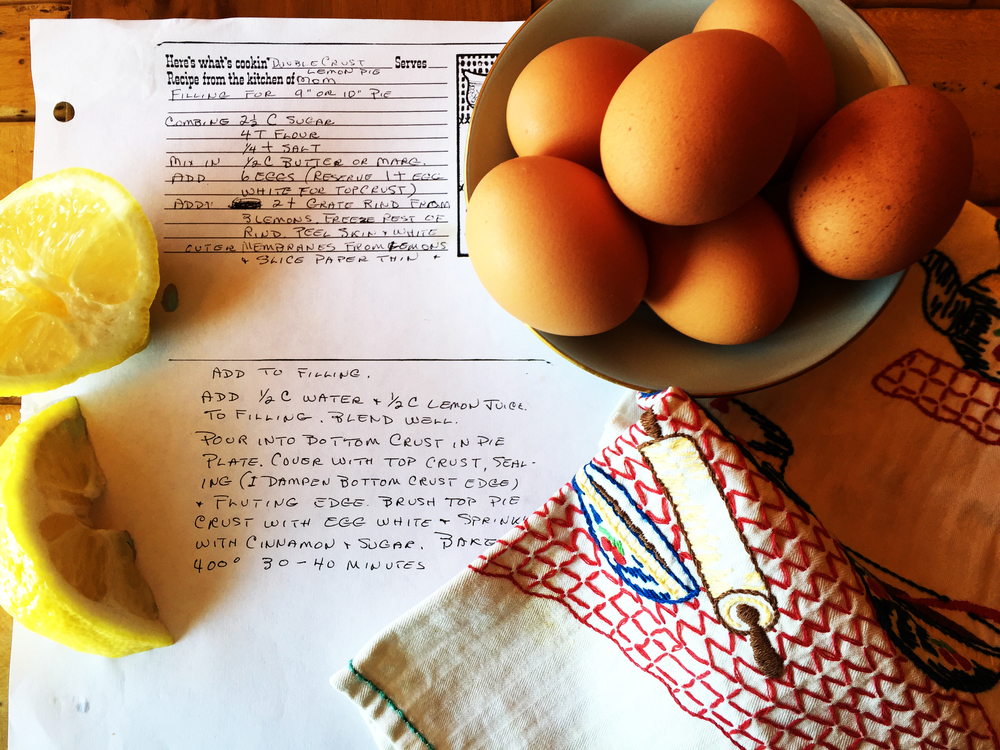 Here's what's cookin' DOUBLE CRUST Serves
LEMON PIE
Recipe from the kitchen of MOM
FILLING FOR 9" OR 10" PIE
COMBING 2½ C SUGAR
4 T FLOUR
¼ t SALT
MIX IN ½ C BUTTER OR MARG.
ADD 6 EGGS (RESERVE 1 t EGG
WHITE FOR TOP CRUST)
ADD 2 t GRATE RIND FROM
3 LEMONS. FREEZE REST OF
RIND. PEEL SKIN + WHITE
OUTER MEMBRANES FROM LEMONS
+ SLICE PAPER THIN +
ADD TO FILLING.
ADD ½ C WATER + ½ C LEMON JUICE
TO FILLING. BLEND WELL.
POUR INTO BOTTOM CRUST IN PIE
PLATE. COVER WITH TOP CRUST, SEAL-
ING (I DAMPEN BOTTOM CRUST EDGE)
+ FLUTING EDGE. BRUSH TOP PIE
CRUST WITH EGG WHITE + SPRINK
WITH CINNAMON + SUGAR. BAKE
400° 30-40 MINUTES